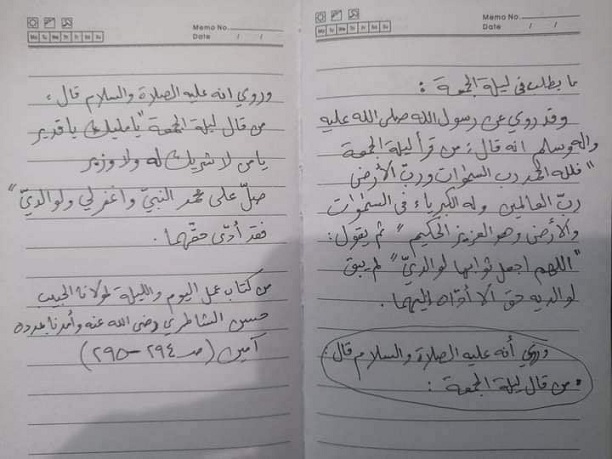 Memo No.
Date / /
Mo Tu We Th Fr Sa Su
ما يطلب في ليلة الجمعة :
وقد روي عن رسول الله صلى الله عليه
وآله وسلم انه قال : من قرأ ليلة الجمعة
"فلله الحمد رب السمٰوات وربّ الأرض
ربّ العالمين وله الكبرياء في السمٰوات
والأرض وهو العزيز الحكيم" ثم يقول :
"اللهم اجعل ثوابها لوالديّ" لم يبق
لوالديه حق الا أدّاه إليهما .
وروي أنه عليه الصلاة والسلام قال
من قال ليلة الجمعة :
Memo No.
Date / /
Mo Tu We Th Fr Sa Su
وروي انه عليه الصلاة والسلام قال :
من قال ليلة الجمعة "يا مليك يا قدير
يا من لا شريك له ولا وزير
صلّ على محمد النبيّ واغفر لي ولوالديّ"
فقد أدّى حقّهما .
من كتاب عمل اليوم والليلة لمولانا الحبيب
حسن الشاطري رضي الله عنه وأمدنا بمدده
آمين (صـ ٢٩٤ - ٢٩٥)